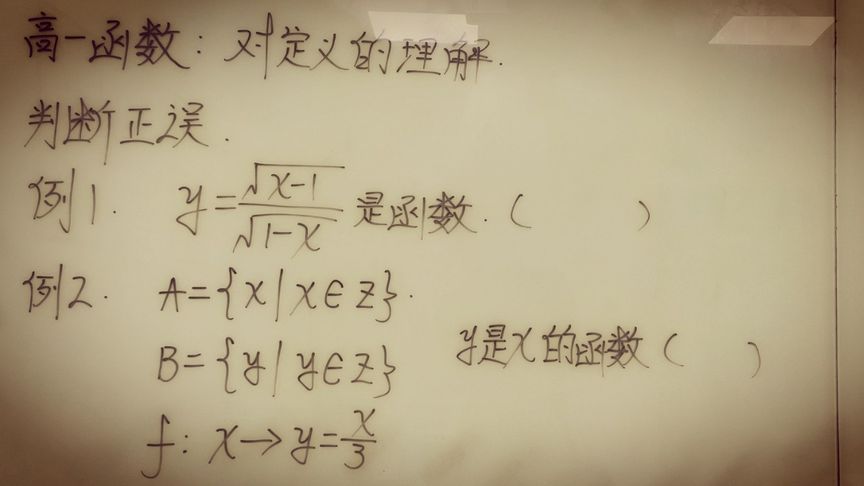 高一函数：对定义的理解.
判断正误.
例1. y=√(x-1)/√(1-x) 是函数.（ ）
例2. A={x|x∈Z}.
B={y|y∈Z} y是x的函数（ ）
f: x→y=x/3